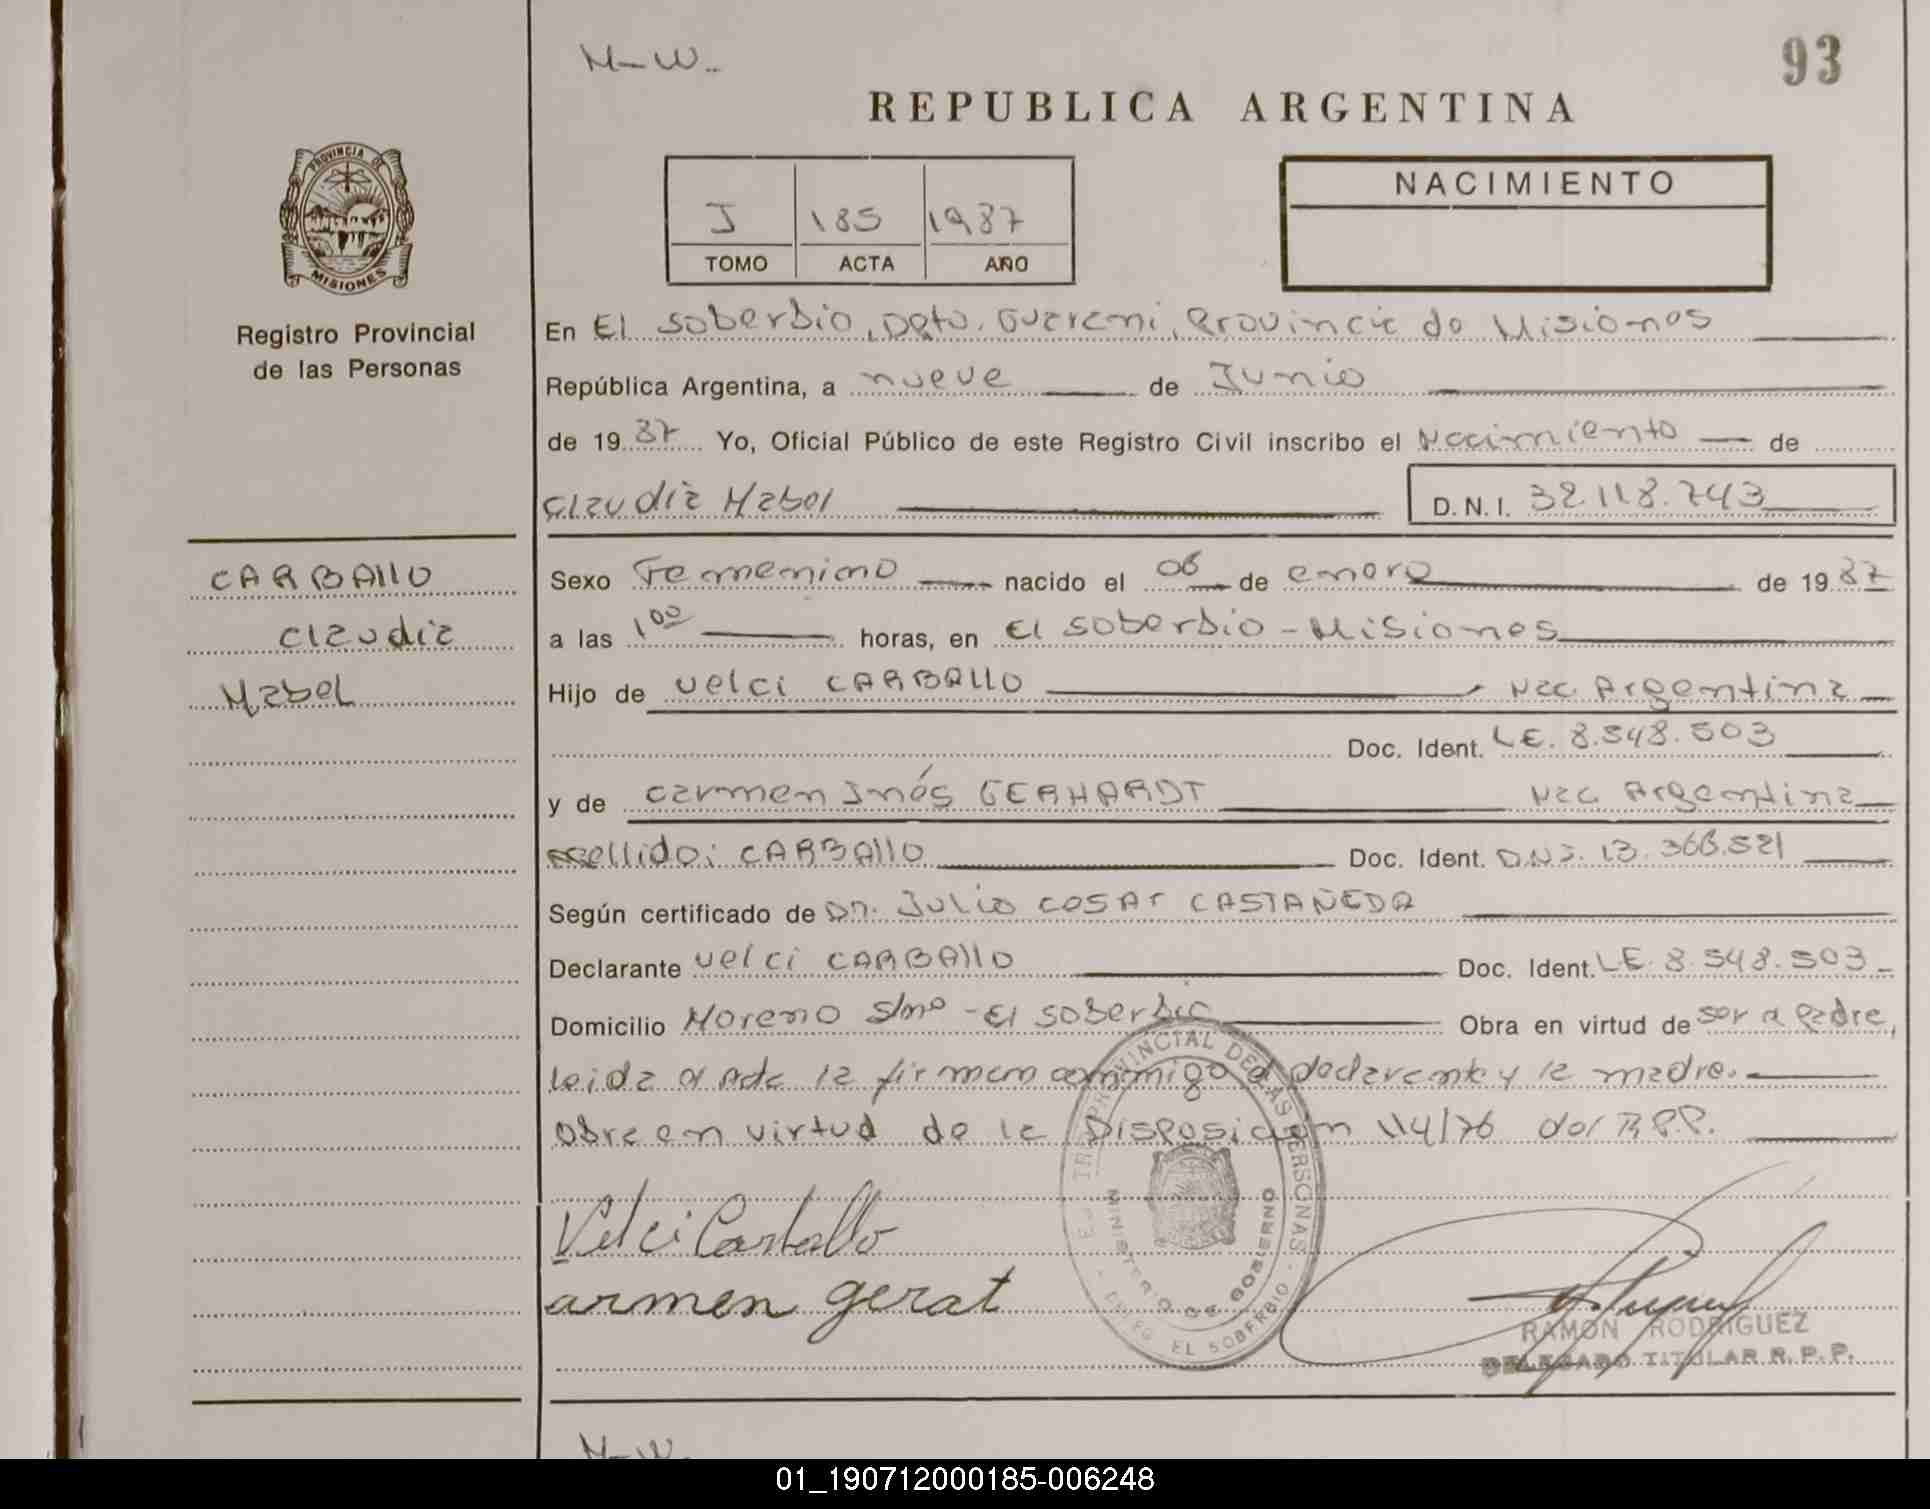 M-W.
93
REPUBLICA ARGENTINA
PROVINCIA DE
MISIONES
Registro Provincial
de las Personas
J 185 1987
TOMO ACTA AÑO
NACIMIENTO
En El Soberbio, Dpto. Guarani, Provincia de Misiones
República Argentina, a nueve de Junio
de 19 87 Yo, Oficial Público de este Registro Civil inscribo el Nacimiento de
Claudia Mabel
D. N. I. 32.118.743
CARBALLO
Claudia
Mabel
Sexo Femenino nacido el 06 de enero de 19 87
a las 1 00 horas, en El Soberbio - Misiones
Hijo de Velci CARBALLO Nac. Argentina
Doc. Ident. LE. 8.548.503
y de Carmen Inés GERHARDT Nac. Argentina
apellido: CARBALLO Doc. Ident. D.N.I. 13.366.521
Según certificado de Dr. Julio Cesar CASTAÑEDA
Declarante Velci CARBALLO Doc. Ident. LE. 8.548.503
Domicilio Moreno s/nº - El Soberbio Obra en virtud de ser el Padre,
leida el Acta la firman conmigo el declarante y la madre.
Obra en virtud de la Disposicion 114/76 del R.P.P.
Velci Carballo
armen gerat
PROVINCIAL DE LAS PERSONAS
MINISTERIO DE GOBIERNO
EL SOBERBIO
RAMON RODRIGUEZ
DELEGADO TITULAR R. P. P.
M-W.
01_190712000185-006248